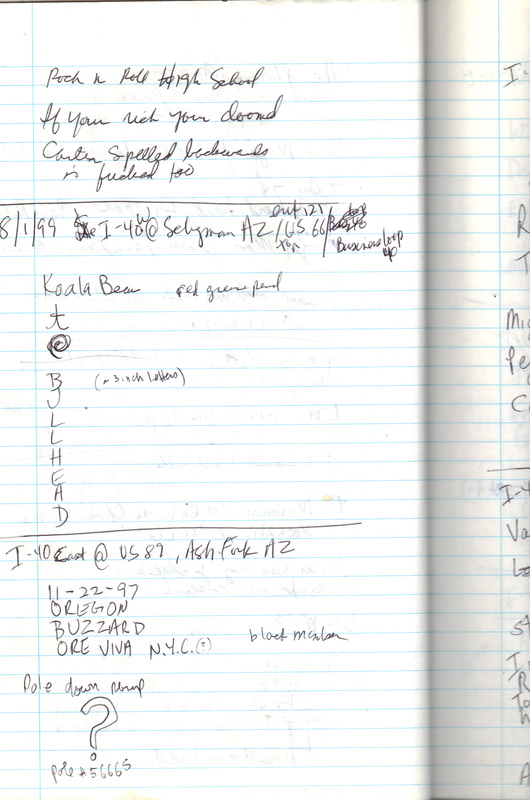 Rock n Roll High School
If your rich your doomed
Carter spelled backwards
is fucked too
8/1/99 I-40W @ Seligman AZ / exit 121 / US 66 / Business loop 40
Koala Bear red grease pencil
t
@
B (~3 inch letters)
J
L
L
H
E
A
D
I-40 East @ US 89, Ash Fork AZ
11-22-97
OREGON
BUZZARD
ORE VIVA N.Y.C.(?) black marker
Pole down ramp
?
pole #56665
I-
R
T
Mi
Pe
C
I-4
Va
St
I
R
To
h
A